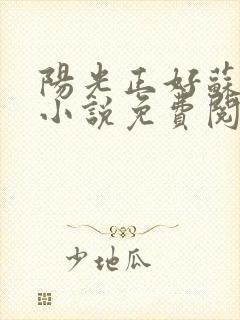 陽光正好蘇
小說免費閱
少地瓜